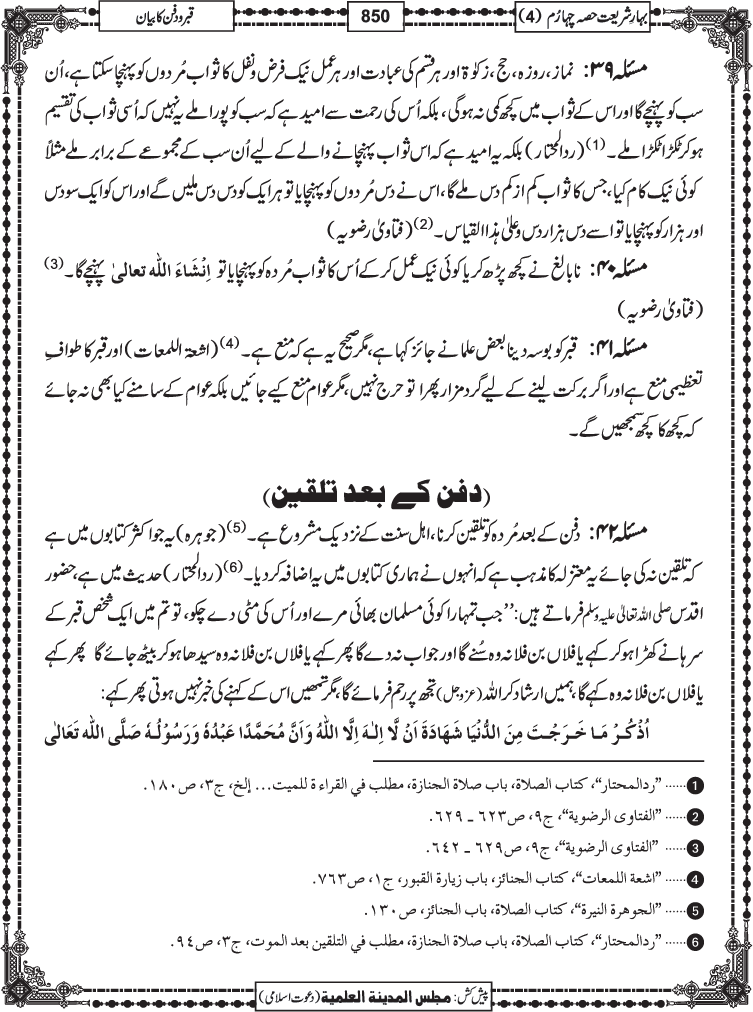 بہارِ شریعت حصہ چہارم (4)
850
قبر و دفن کا بیان
مسئلہ ۳۹: نماز، روزہ، حج، زکوٰۃ اور ہر قسم کی عبادت اور ہر عمل نیک فرض و نفل کا ثواب مُردوں کو پہنچا سکتا ہے، اُن
سب کو پہنچے گا اور اس کے ثواب میں کچھ کمی نہ ہوگی، بلکہ اُس کی رحمت سے امید ہے کہ سب کو پورا ملے یہ نہیں کہ اُسی ثواب کی تقسیم
ہو کر ٹکڑا ٹکڑا ملے۔ (1) (ردالمحتار) بلکہ یہ امید ہے کہ اس ثواب پہنچانے والے کے لیے اُن سب کے مجموعے کے برابر ملے مثلاً
کوئی نیک کام کیا، جس کا ثواب کم از کم دس ملے گا، اس نے دس مُردوں کو پہنچایا تو ہر ایک کو دس دس ملیں گے اور اس کو ایک سو دس
اور ہزار کو پہنچایا تو اسے دس ہزار دس وعلیٰ ہذا القیاس۔ (2) (فتاویٰ رضویہ)
مسئلہ ۴۰: نابالغ نے کچھ پڑھ کر یا کوئی نیک عمل کر کے اُس کا ثواب مُردہ کو پہنچایا تو اِنْشَاءَ اللہ تعالیٰ پہنچے گا۔ (3)
(فتاویٰ رضویہ)
مسئلہ ۴۱: قبر کو بوسہ دینا بعض علما نے جائز کہا ہے، مگر صحیح یہ ہے کہ منع ہے۔ (4) (اشعۃ اللمعات) اور قبر کا طوافِ
تعظیمی منع ہے اور اگر برکت لینے کے لیے گرد مزار پھرا تو حرج نہیں، مگر عوام منع کیے جائیں بلکہ عوام کے سامنے کیا بھی نہ جائے
کہ کچھ کا کچھ سمجھیں گے۔
(دفن کے بعد تلقین)
مسئلہ ۴۲: دفن کے بعد مُردہ کو تلقین کرنا، اہل سنت کے نزدیک مشروع ہے۔ (5) (جوہرہ) یہ جو اکثر کتابوں میں ہے
کہ تلقین نہ کی جائے یہ معتزلہ کا مذہب ہے کہ انہوں نے ہماری کتابوں میں یہ اضافہ کر دیا۔ (6) (ردالمحتار) حدیث میں ہے، حضور
اقدس صلی اللہ تعالیٰ علیہ وسلم فرماتے ہیں: ''جب تمہارا کوئی مسلمان بھائی مرے اور اُس کی مٹی دے چکو، تو تم میں ایک شخص قبر کے
سرہانے کھڑا ہو کر کہے یا فلاں بن فلانہ وہ سُنے گا اور جواب نہ دے گا پھر کہے یا فلاں بن فلانہ وہ سیدھا ہو کر بیٹھ جائے گا پھر کہے
یا فلاں بن فلانہ وہ کہے گا، ہمیں ارشاد کر اللہ (عزوجل) تجھ پر رحم فرمائے گا، مگر تمھیں اس کے کہنے کی خبر نہیں ہوتی پھر کہے:
اُذْکُرْ مَا خَرَجْتَ مِنَ الدُّنْیَا شَھَادَۃَ اَنْ لَّا اِلٰـہَ اِلَّا اللّٰہُ وَاَنَّ مُحَمَّدًا عَبْدُہٗ وَرَسُوْلُـہٗ صَلَّی اللّٰہ تَعَالٰی
1 ...... "ردالمحتار"، کتاب الصلاۃ، باب صلاۃ الجنازۃ، مطلب في القراء ۃ للميت... إلخ، ج۳، ص۱۸۰.
2 ...... "الفتاوی الرضویۃ"، ج۹، ص۶۲۳ ـ ۶۲۹.
3 ...... "الفتاوی الرضویۃ"، ج۹، ص۶۲۹ ـ ۶۴۲.
4 ...... "اشعۃ اللمعات"، کتاب الجنائز، باب زیارۃ القبور، ج۱، ص۷۶۳.
5 ...... "الجوهرۃ النيرۃ"، کتاب الصلاۃ، باب الجنائز، ص۱۳۰.
6 ...... "ردالمحتار"، کتاب الصلاۃ، باب صلاۃ الجنازۃ، مطلب في التلقين بعد الموت، ج۳، ص۹۴.
پیش کش: مجلس المدینۃ العلمیۃ (دعوتِ اسلامی)